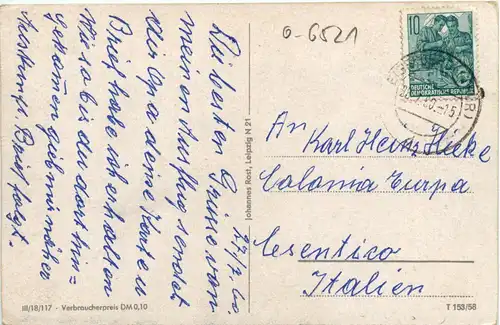 o-6521
10
DEUTSCHE
DEMOKRATISCHE REPUBLIK
27/7 60
Lieben Grüsse von
meinen Ausflug sendet
dir Opa deine Karte u
Brief habe ich erhalten
Wieso bis du dort hin=
gekommen gieb mir näher
Auskunft. Brief folgt.
Johannes Rost, Leipzig N 21
An Karl Heinz Hieke
Colonia Eurpa
Cesentico
Italien
III/18/117 - Verbraucherpreis DM 0,10
T 153/58